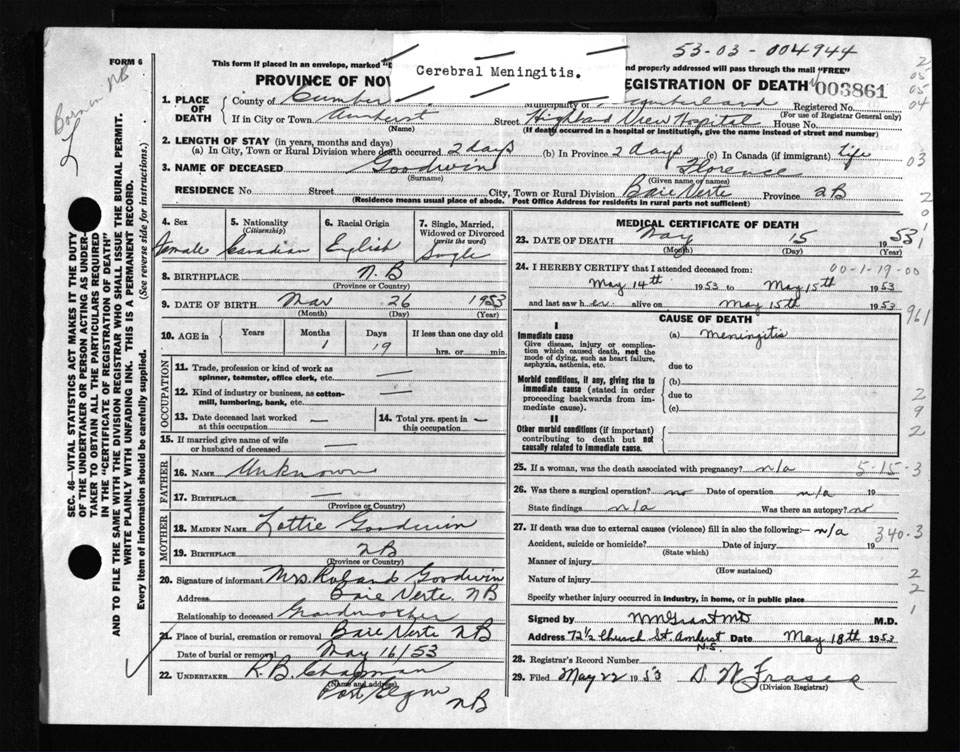 53-03-004944
FORM 6
This form if placed in an envelope, marked
and properly addressed will pass through the mail "FREE"
Cerebral Meningitis.
PROVINCE OF NOV
REGISTRATION OF DEATH
003861
Born in NB
1. PLACE OF DEATH
County of
Municipality of Cumberland
Registered No.
(For use of Registrar General only)
If in City or Town Amherst
Street Highland View Hospital House No.
(Name)
(If death occurred in a hospital or institution, give the name instead of street and number)
2. LENGTH OF STAY (in years, months and days)
(a) In City, Town or Rural Division where death occurred 2 days (b) In Province 2 days (c) In Canada (if immigrant) life
3. NAME OF DECEASED Goodwin Florence
(Surname) (Given name or names)
RESIDENCE No. Street City, Town or Rural Division Baie Verte Province NB
(Residence means usual place of abode. Post Office Address for residents in rural parts not sufficient)
4. Sex
Female
5. Nationality
(Citizenship)
Canadian
6. Racial Origin
English
7. Single, Married,
Widowed or Divorced
(write the word)
Single
8. BIRTHPLACE N.B
(Province or Country)
9. DATE OF BIRTH Mar 26 1953
(Month) (Day) (Year)
10. AGE in
Years
Months
1
Days
19
If less than one day old
hrs. or min.
OCCUPATION
11. Trade, profession or kind of work as
spinner, teamster, office clerk, etc. —
12. Kind of industry or business, as cotton-
mill, lumbering, bank, etc. —
13. Date deceased last worked
at this occupation —
14. Total yrs. spent in
this occupation —
15. If married give name of wife
or husband of deceased —
FATHER
16. NAME Unknown
17. BIRTHPLACE —
(Province or Country)
MOTHER
18. MAIDEN NAME Lottie Goodwin
19. BIRTHPLACE NB
(Province or Country)
20. Signature of informant Mrs. Roland Goodwin
Address Baie Verte. NB
Relationship to deceased Grandmother
21. Place of burial, cremation or removal Baie Verte NB
Date of burial or removal May 16/53
22. UNDERTAKER R.B. Chapman
(Name and address)
Port Elgin
NB
MEDICAL CERTIFICATE OF DEATH
23. DATE OF DEATH May 15 1953
(Month) (Day) (Year)
24. I HEREBY CERTIFY that I attended deceased from:
00-1-19-00
May 14th 1953 to May 15th 1953
and last saw her alive on May 15th 1953
961
CAUSE OF DEATH
I
Immediate cause
Give disease, injury or complica-
tion which caused death, not the
mode of dying, such as heart failure,
asphyxia, asthenia, etc.
(a) Meningitis
due to
Morbid conditions, if any, giving rise to
immediate cause (stated in order
proceeding backwards from im-
mediate cause).
(b)
due to
(c)
II
Other morbid conditions (if important)
contributing to death but not
causally related to immediate cause.
25. If a woman, was the death associated with pregnancy? n/a
5-15-3
26. Was there a surgical operation? no Date of operation n/a 19
State findings n/a Was there an autopsy? no
27. If death was due to external causes (violence) fill in also the following:— n/a
340-3
Accident, suicide or homicide? Date of injury 19
(State which)
Manner of injury
(How sustained)
Nature of injury
Specify whether injury occurred in industry, in home, or in public place
Signed by WMGrant MD M.D.
Address 72½ Church St Amherst Date May 18th 1953
N.S.
28. Registrar's Record Number
29. Filed May 22 1953 D. W Fraser
(Division Registrar)
SEC. 46—VITAL STATISTICS ACT MAKES IT THE DUTY
OF THE UNDERTAKER OR PERSON ACTING AS UNDER-
TAKER TO OBTAIN ALL THE PARTICULARS REQUIRED
IN THE "CERTIFICATE OF REGISTRATION OF DEATH"
AND TO FILE THE SAME WITH THE DIVISION REGISTRAR WHO SHALL ISSUE THE BURIAL PERMIT.
WRITE PLAINLY WITH UNFADING INK. THIS IS A PERMANENT RECORD.
Every item of information should be carefully supplied. (See reverse side for instructions.)